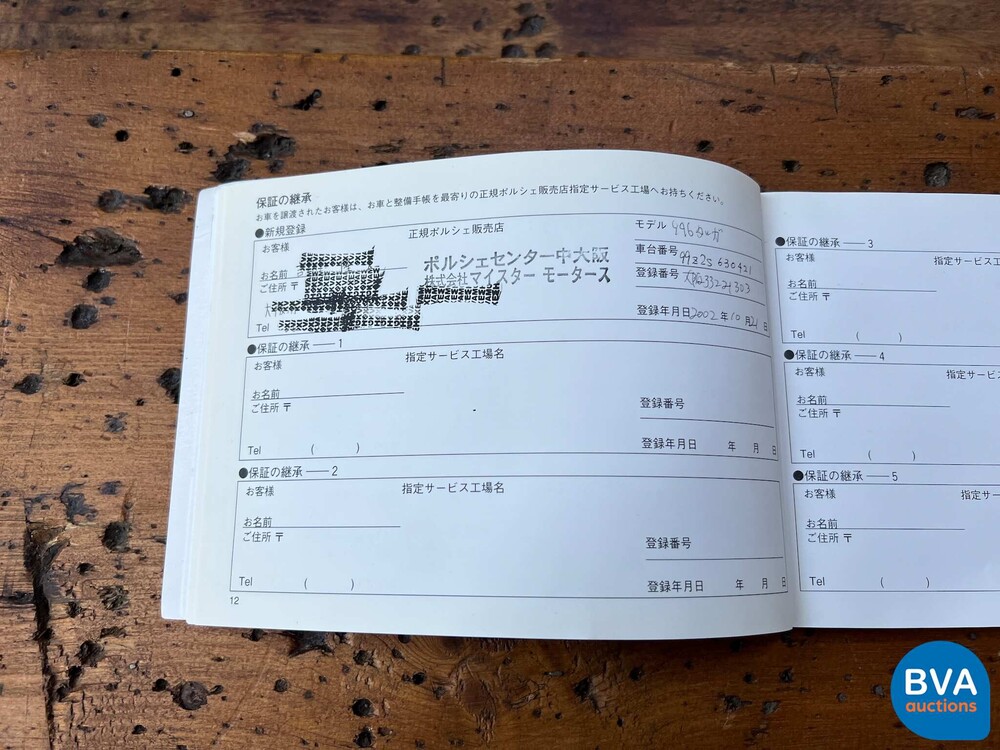 保証の継承
お車を譲渡されたお客様は、お車と整備手帳を最寄りの正規ポルシェ販売店指定サービス工場へお持ちください。
●新規登録
お客様
正規ポルシェ販売店
モデル 996タルガ
お名前
ご住所 〒
ポルシェセンター中大阪
株式会社マイスター モータース
車台番号 99Z2S 630421
登録番号
登録年月日 2002 年 10 月 21 日
Tel
●保証の継承 ── 1
お客様
指定サービス工場名
お名前
ご住所 〒
登録番号
Tel ( )
登録年月日 年 月 日
●保証の継承 ── 2
お客様
指定サービス工場名
お名前
ご住所 〒
登録番号
Tel ( )
登録年月日 年 月 日
12
●保証の継承 ── 3
お客様
指定サービス工
お名前
ご住所 〒
Tel ( )
●保証の継承 ── 4
お客様
指定サービス
お名前
ご住所 〒
Tel ( )
●保証の継承 ── 5
お客様
指定サー
お名前
ご住所 〒
Tel ( )
BVA
auctions